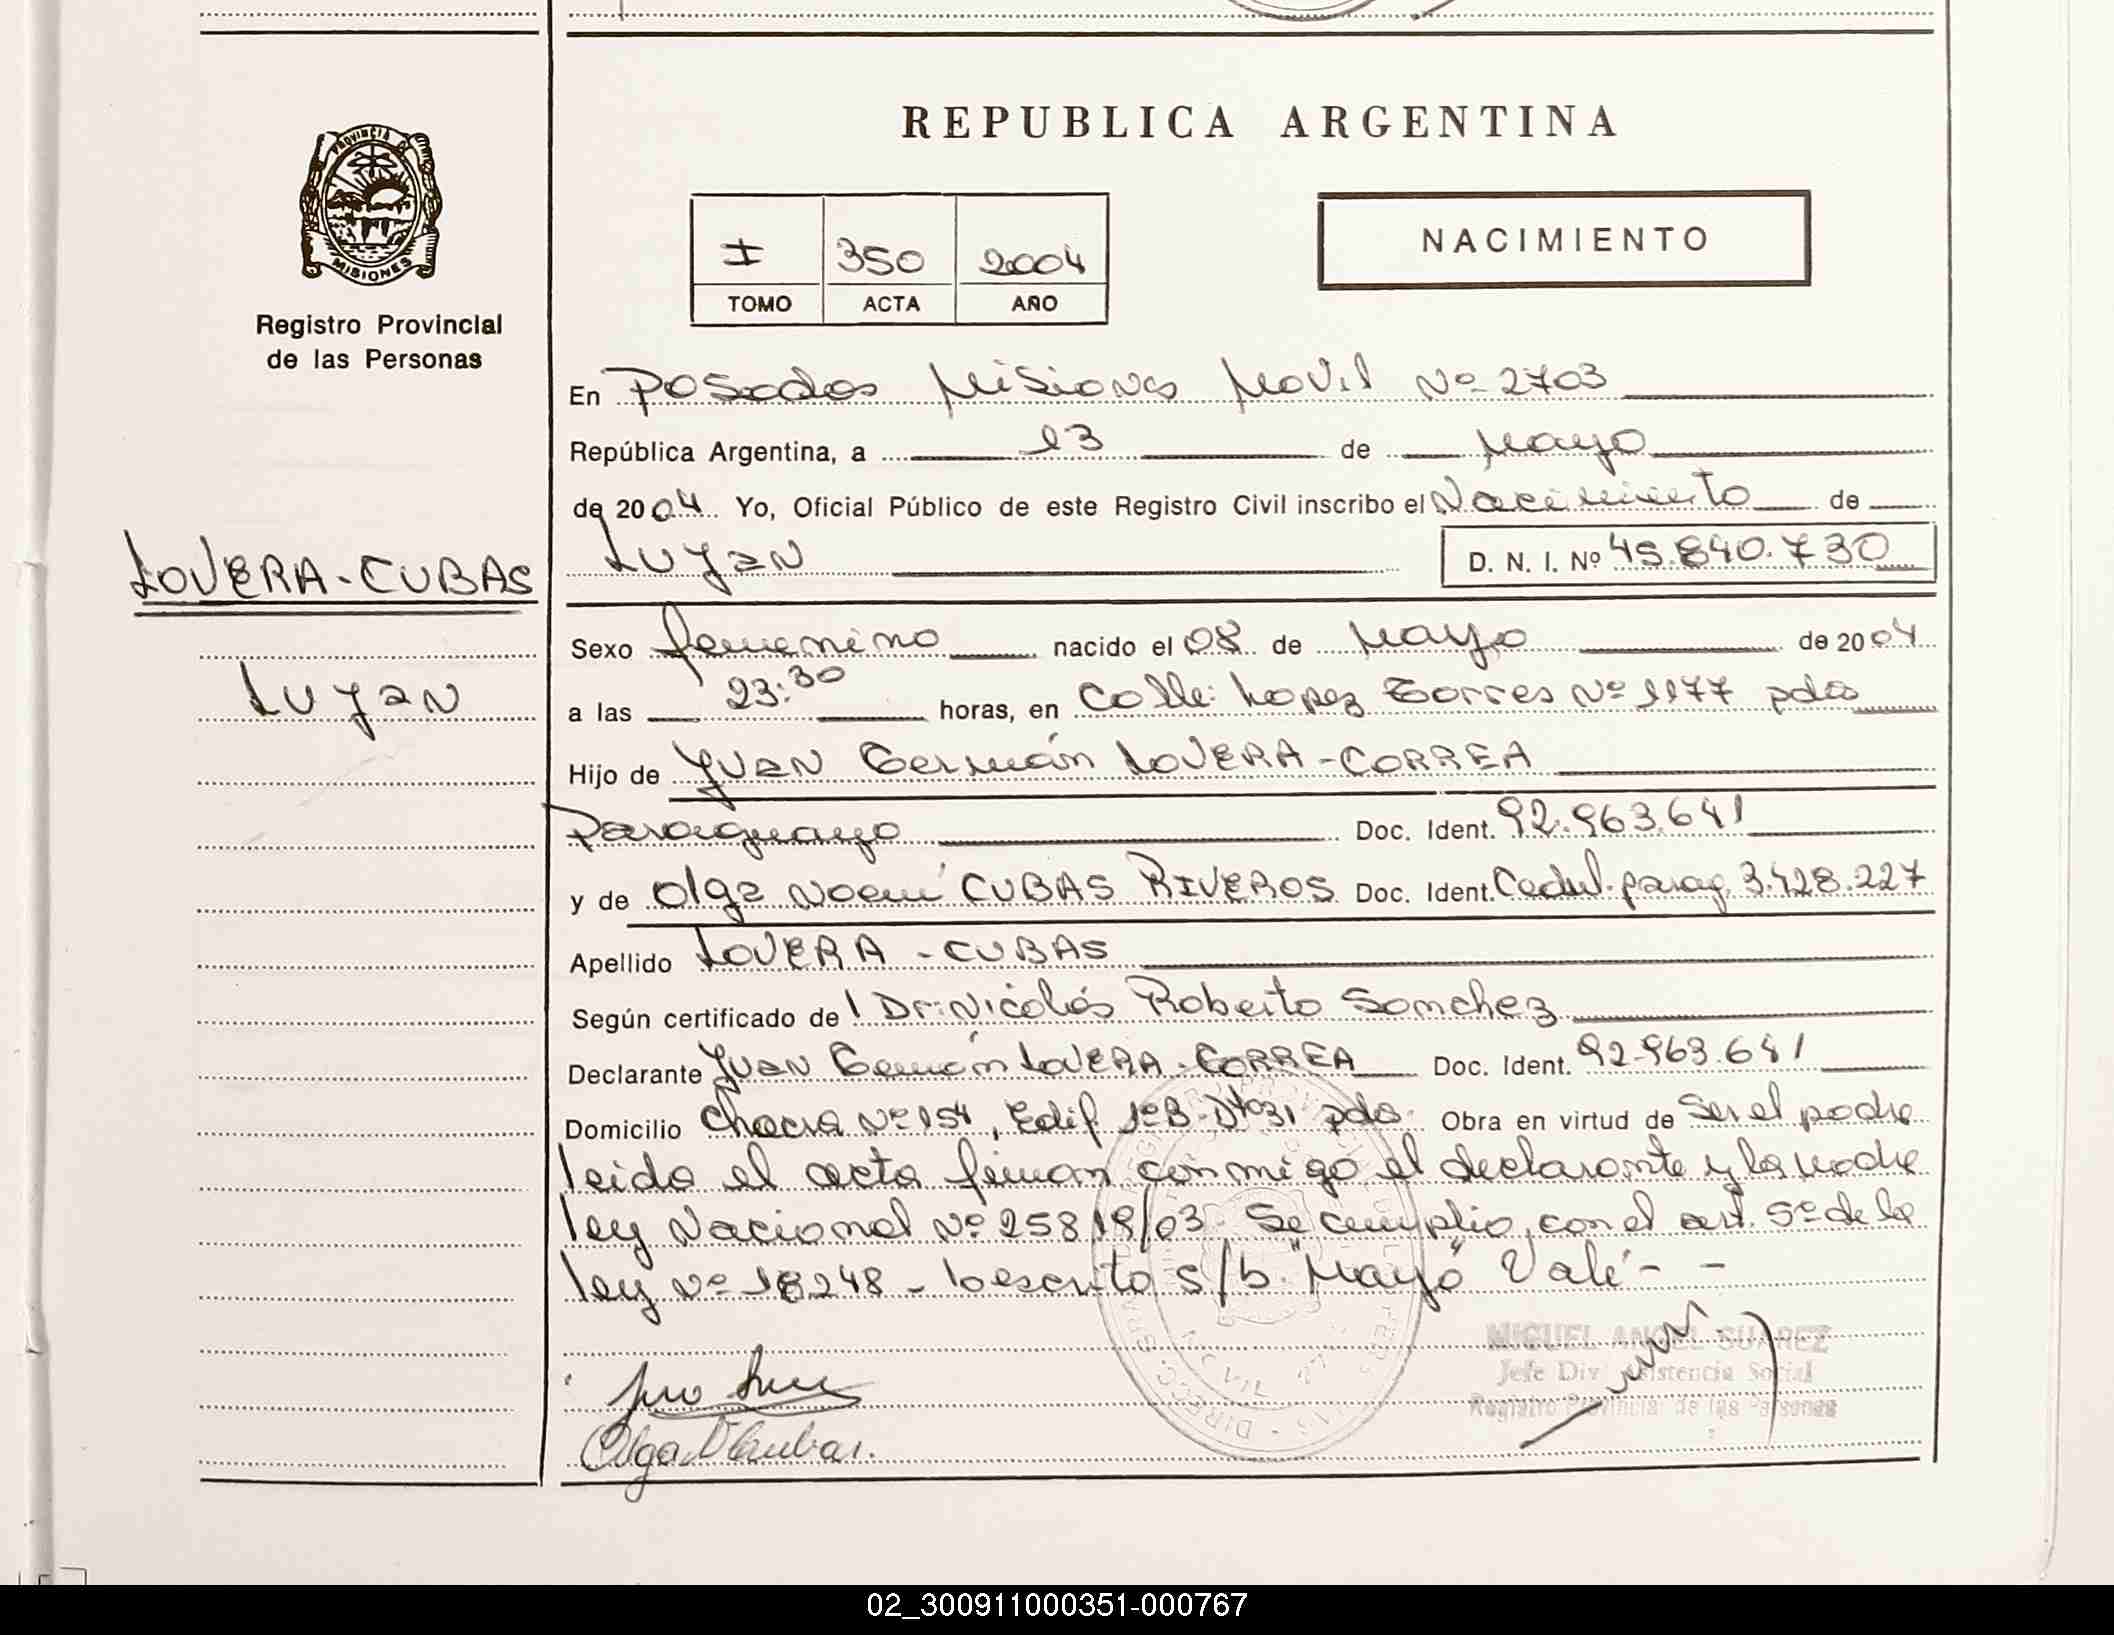 REPUBLICA ARGENTINA
PROVINCIA DE
MISIONES
Registro Provincial
de las Personas
I 350 2004
TOMO ACTA AÑO
NACIMIENTO
En Posadas Misiones Movil Nº 2703
República Argentina, a 13 de Mayo
de 2004 Yo, Oficial Público de este Registro Civil inscribo el Nacimiento de
LOVERA-CUBAS
Lujan
Lujan D. N. I. Nº 45.840.730
Sexo femenino nacido el 08 de Mayo de 2004
a las 23:30 horas, en Calle: Lopez Torres Nº 1177 pdas
Hijo de Juan Germán LOVERA-CORREA
Paraguayo Doc. Ident. 92.963.641
y de Olga Noemí CUBAS RIVEROS Doc. Ident. Cedul. parag. 3.428.227
Apellido LOVERA-CUBAS
Según certificado de Dr: Nicolás Roberto Sanchez
Declarante Juan Germán LOVERA-CORREA Doc. Ident. 92.963.641
Domicilio Chacra Nº 154, Edif. 1º B-Dto 31 pdas. Obra en virtud de Ser el padre
leida el acta firman conmigo el declarante y la madre
ley Nacional Nº 25819/03. Se cumplio, con el art. 5º de la
ley Nº 18248 - s/b. "Mayo" Vale - -
MIGUEL ANGEL SUAREZ
Jefe Div Asistencia Social
Registro Provincial de las Personas
02_300911000351-000767